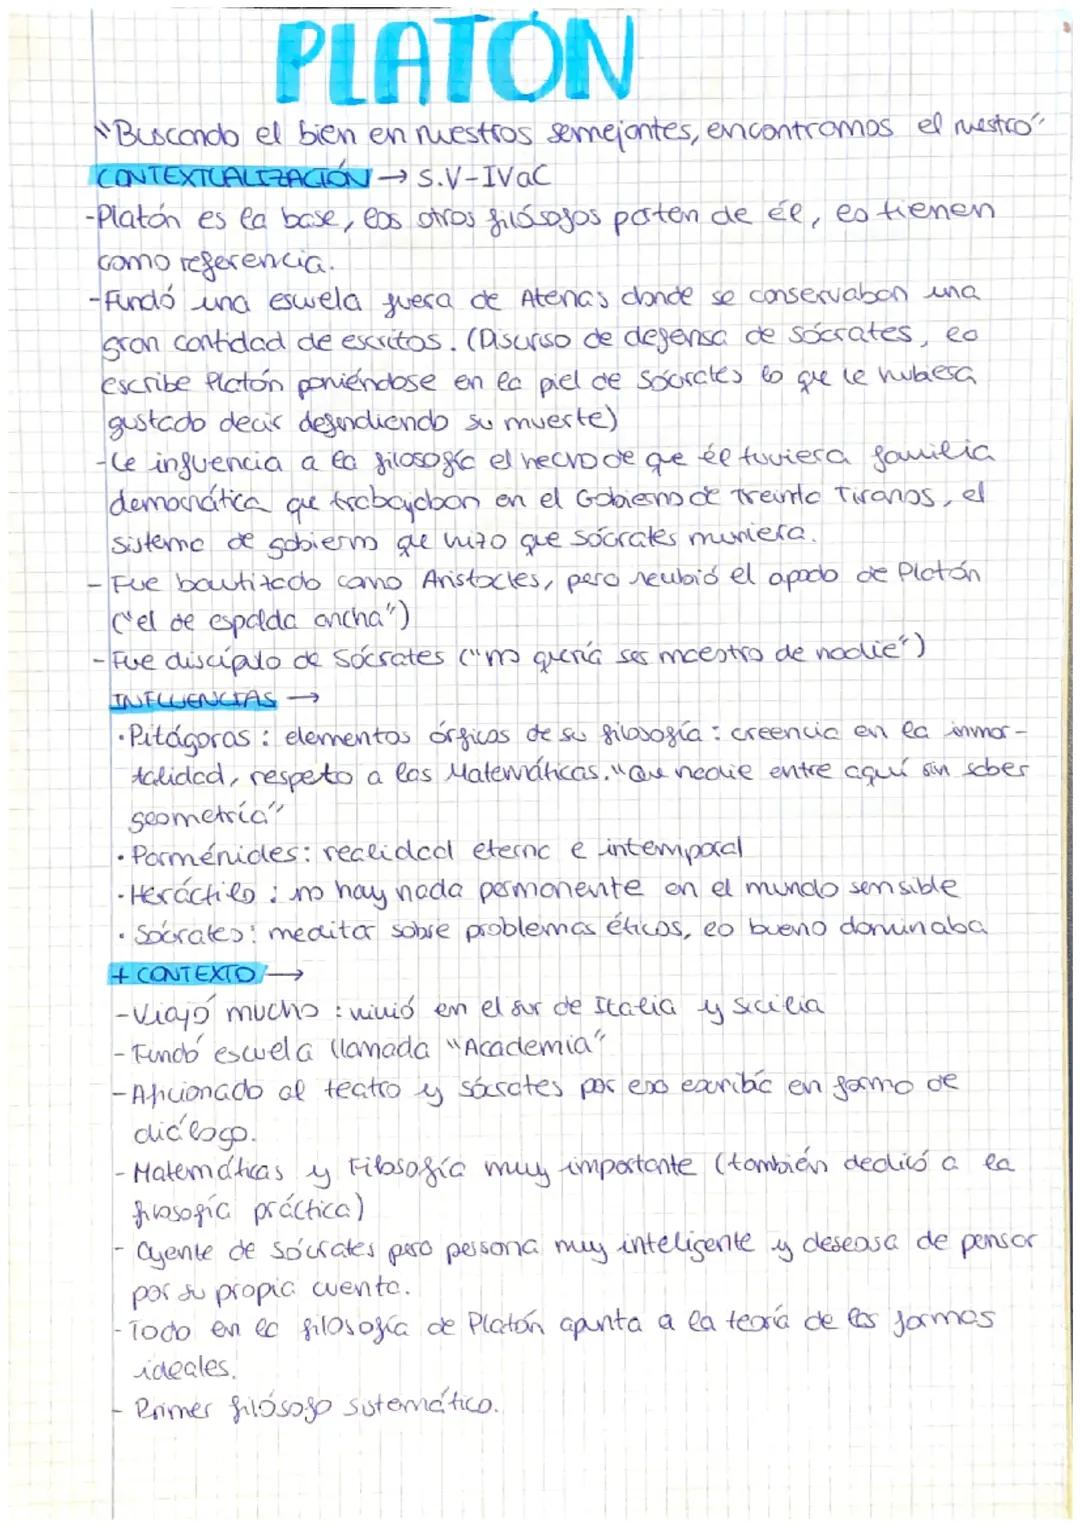 PLATÓN
"Buscando el bien en nuestros semejantes, encontramos el nuestro"
CONTEXTUALIZACIÓN → S.V-IVaC
-Platón es la base, los otros filósofos parten de él, lo tienen
como referencia.
-Fundó una escuela fuera de Atenas donde se conservaban una
gran cantidad de escritos. (Discurso de defensa de Sócrates, lo
escribe Platón poniéndose en la piel de Sócrates lo que le hubiera
gustado decir defendiendo su muerte)
-Le influencia a la filosofía el hecho de que él tuviera familia
democrática que trabajaban en el Gobierno de Treinta Tiranos, el
sistema de gobierno que hizo que Sócrates muriera.
-Fue bautizado como Aristocles, pero recibió el apodo de Platón
("el de espalda ancha")
-Fue discípulo de Sócrates ("no quería ser maestro de nadie")
INFLUENCIAS →
·Pitágoras: elementos órficos de su filosofía: creencia en la inmor-
talidad, respeto a las Matemáticas. "Que nadie entre aquí sin saber
geometría"
·Parménides: realidad eterna e intemporal
·Heráctilo: no hay nada permanente en el mundo sensible
·Sócrates: meditar sobre problemas éticos, lo bueno dominaba
+ CONTEXTO →
-Viajó mucho: vivió en el sur de Italia y Sicilia
-Fundó escuela llamada "Academia"
-Aficionado al teatro y Sócrates por eso escribía en forma de
diálogo.
-Matemáticas y Filosofía muy importante (también dedicó a la
filosofía práctica)
-Oyente de Sócrates pero persona muy inteligente y deseosa de pensar
por su propia cuenta.
-Todo en la filosofía de Platón apunta a la teoría de las formas
ideales.
-Primer filósofo sistemático.